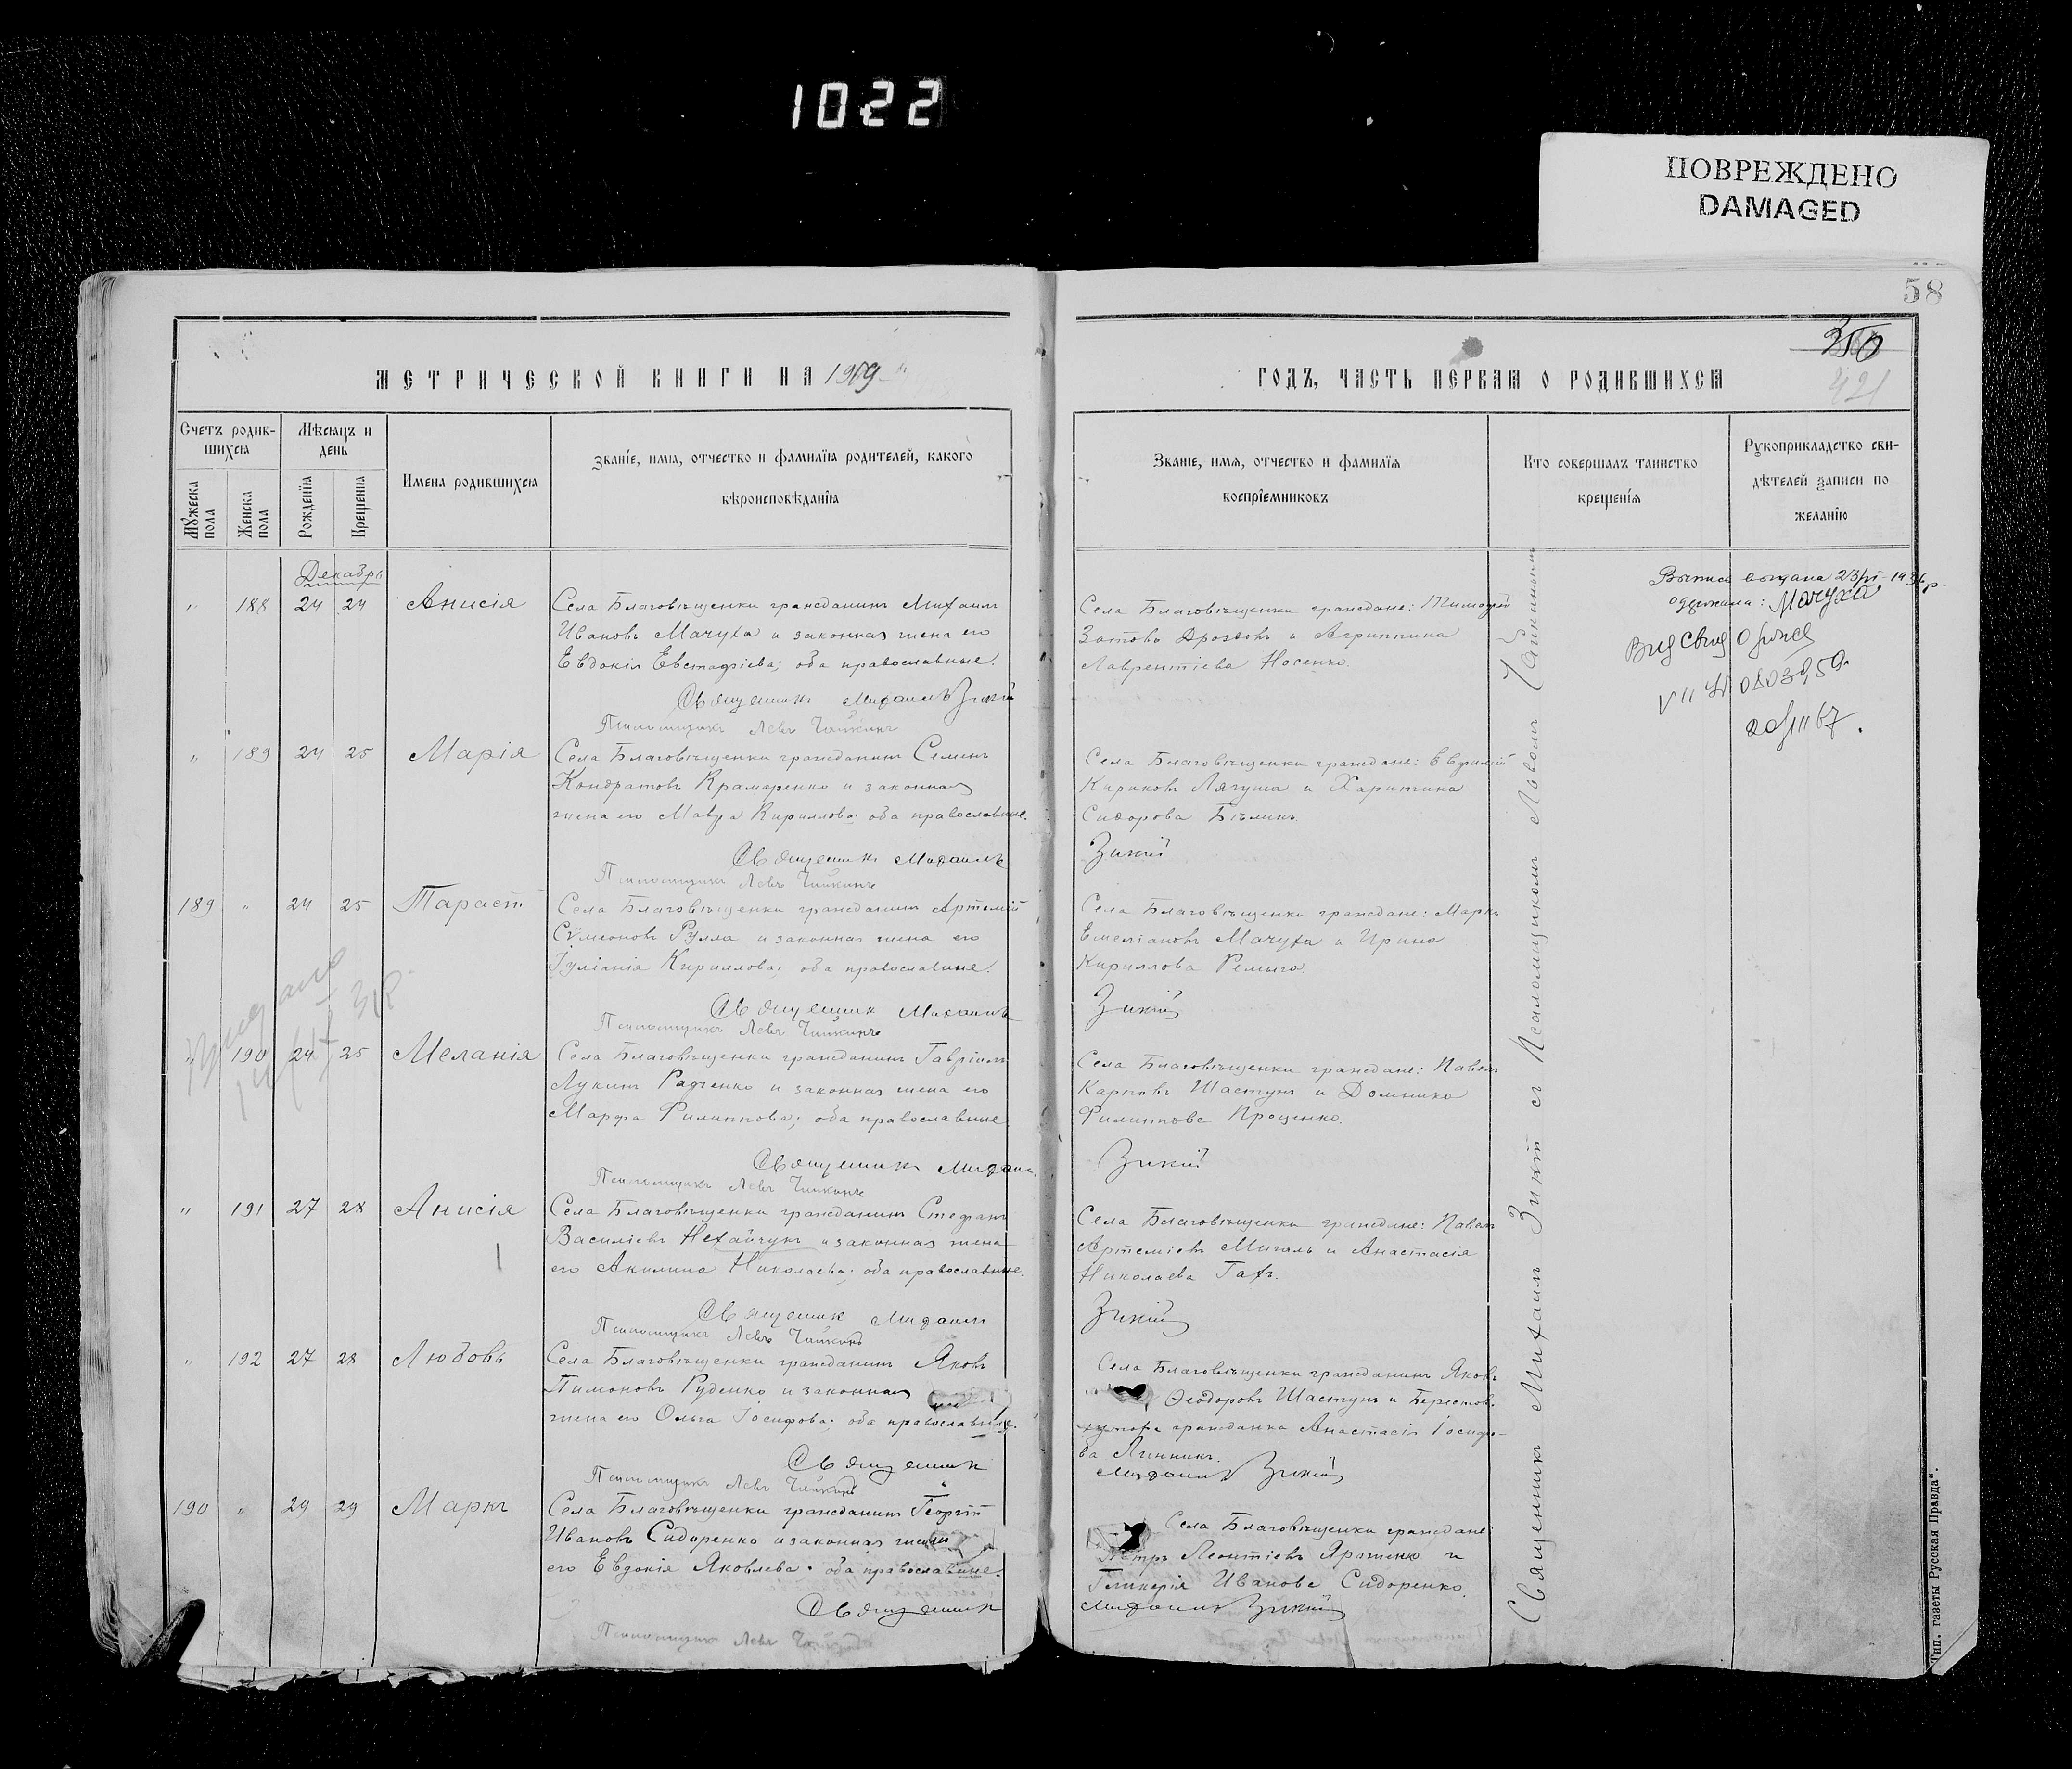 1022
ПОВРЕЖДЕНО
DAMAGED
58
350
421
МЕТРИЧЕСКОЙ КНИГИ НА 1919
ГОДЪ, ЧАСТЬ ПЕРВАЯ О РОДИВШИХСЯ
Счетъ родив-
шихся
Мужеска
пола
Женска
пола
Мѣсяцъ и
день
Рожденія
Крещенія
Имена родившихся
Званіе, имя, отчество и фамилія родителей, какого
вѣроисповѣданія
Званіе, имя, отчество и фамилія
воспріемниковъ
Кто совершалъ таинство
крещенія
Рукоприкладство сви-
дѣтелей записи по
желанію
Декабрь
" 188 24 24 Анисія
Села Благовѣщенки гражданинъ Михаилъ
Ивановъ Мачуха и законная жена его
Евдокія Евстафіева; оба православные.
Священникъ Михаилъ Зикій
Псаломщикъ Левъ Чайкинъ
Села Благовѣщенки граждане: Тимофей
Зотовъ Дроздовъ и Агриппина
Лаврентіева Носенко.
Мачуха
" 189 24 25 Марія
Села Благовѣщенки гражданинъ Семенъ
Кондратовъ Крамаренко и законная
жена его Мавра Кириллова; оба православные.
Священникъ Михаилъ
Псаломщикъ Левъ Чайкинъ
Села Благовѣщенки граждане: Евфимій
Кириковъ Лягуша и Харитина
Сидорова Бѣлинъ.
Зикій
189 " 24 25 Тарасій
Села Благовѣщенки гражданинъ Артемій
Сѵмеоновъ Рулла и законная жена его
Іуліанія Кириллова; оба православные.
Священникъ Михаилъ
Псаломщикъ Левъ Чайкинъ
Села Благовѣщенки граждане: Маркъ
Емеліановъ Мачуха и Ирина
Кириллова Ремыга.
Зикій
" 190 24 25 Меланія
Села Благовѣщенки гражданинъ Гавріилъ
Лукинъ Радченко и законная жена его
Марфа Филиппова; оба православные.
Священникъ Михаилъ
Псаломщикъ Левъ Чайкинъ
Села Благовѣщенки граждане: Павелъ
Карповъ Шастунъ и Домника
Филиппова Проценко.
Зикій
" 191 27 28 Анисія
Села Благовѣщенки гражданинъ Стефанъ
Василіевъ Нехайчукъ и законная жена
его Акилина Николаева; оба православные.
Священникъ Михаилъ
Псаломщикъ Левъ Чайкинъ
Села Благовѣщенки граждане: Павелъ
Артеміевъ Мигаль и Анастасія
Николаева Гахъ.
Зикій
" 192 27 28 Любовь
Села Благовѣщенки гражданинъ Яковъ
Пимоновъ Руденко и законная
жена его Ольга Іосифова; оба православные.
Священникъ
Псаломщикъ Левъ Чайкинъ
Села Благовѣщенки гражданинъ Яковъ
Ѳеодоровъ Шастунъ и Берестов.
хутора гражданка Анастасія Іосифо-
ва Линникъ.
Михаилъ Зикій
190 " 29 29 Маркъ
Села Благовѣщенки гражданинъ Георгій
Ивановъ Сидоренко и законная жена
его Евдокія Яковлева; оба православные.
Священникъ
Псаломщикъ Левъ
Села Благовѣщенки граждане:
Петръ Леонтіевъ Ярошенко и
Гликерія Иванова Сидоренко.
Михаилъ Зикій
Священникъ Михаилъ Зикій съ Псаломщикомъ Львомъ Чайкинымъ
Тип. газеты Русская Правда".